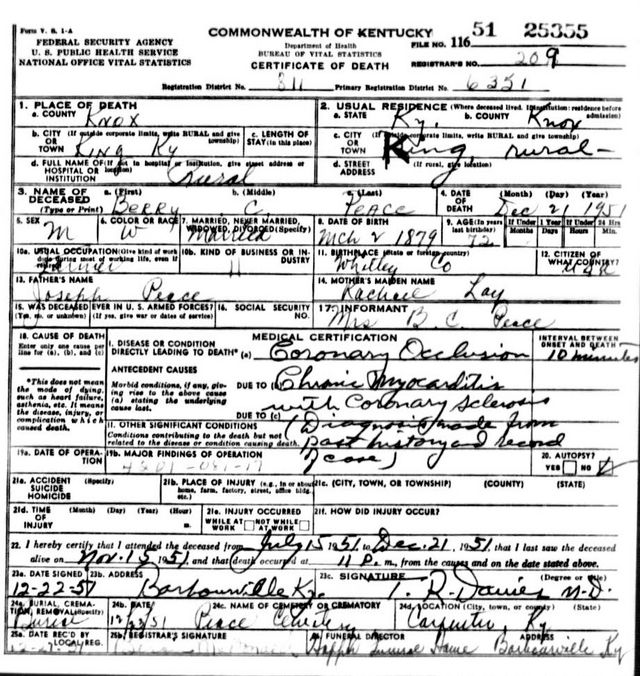 Form V. S. 1-A
FEDERAL SECURITY AGENCY
U. S. PUBLIC HEALTH SERVICE
NATIONAL OFFICE VITAL STATISTICS
COMMONWEALTH OF KENTUCKY
Department of Health
BUREAU OF VITAL STATISTICS
CERTIFICATE OF DEATH
FILE NO. 116 51 25355
REGISTRAR'S NO. 209
Registration District No. 311 Primary Registration District No. 6351
1. PLACE OF DEATH
a. COUNTY Knox
b. CITY (If outside corporate limits, write RURAL and give township) OR TOWN King Ky
c. LENGTH OF STAY (in this place)
d. FULL NAME OF (If not in hospital or institution, give street address or location) HOSPITAL OR INSTITUTION rural
2. USUAL RESIDENCE (Where deceased lived. If institution: residence before admission)
a. STATE Ky. b. COUNTY Knox
c. CITY (If outside corporate limits, write RURAL and give township) OR TOWN King, rural-
d. STREET ADDRESS (If rural, give location)
3. NAME OF DECEASED (Type or Print) a. (First) Berry b. (Middle) C c. (Last) Peace
4. DATE OF DEATH (Month) (Day) (Year) Dec 21 1951
5. SEX M
6. COLOR OR RACE W
7. MARRIED, NEVER MARRIED, WIDOWED, DIVORCED (Specify) Married
8. DATE OF BIRTH Mch 2 1879
9. AGE (In years last birthday) 72 If Under 1 Year Months Days If Under 24 Hrs Hours Min.
10a. USUAL OCCUPATION (Give kind of work done during most of working life, even if retired) Farmer
10b. KIND OF BUSINESS OR INDUSTRY 11
11. BIRTHPLACE (State or foreign country) Whitley Co
12. CITIZEN OF WHAT COUNTRY?
13. FATHER'S NAME Joseph Peace
14. MOTHER'S MAIDEN NAME Rachael Lay
15. WAS DECEASED EVER IN U. S. ARMED FORCES? (Yes, no, or unknown) (If yes, give war or dates of service)
16. SOCIAL SECURITY NO.
17. INFORMANT Mrs B. C. Peace
18. CAUSE OF DEATH
Enter only one cause per line for (a), (b), and (c)
*This does not mean the mode of dying, such as heart failure, asthenia, etc. It means the disease, injury, or complication which caused death.
MEDICAL CERTIFICATION
INTERVAL BETWEEN ONSET AND DEATH
I. DISEASE OR CONDITION DIRECTLY LEADING TO DEATH* (a) Coronary Occlusion 10 minutes
ANTECEDENT CAUSES
Morbid conditions, if any, giving rise to the above cause (a) stating the underlying cause last.
DUE TO (b) Chronic Myocarditis
with Coronary Sclerosis
DUE TO (c)
II. OTHER SIGNIFICANT CONDITIONS
Conditions contributing to the death but not related to the disease or condition causing death.
(Diagnosis made from
past history and record
of case)
19a. DATE OF OPERATION
19b. MAJOR FINDINGS OF OPERATION
20. AUTOPSY? YES NO
21a. ACCIDENT SUICIDE HOMICIDE (Specify)
21b. PLACE OF INJURY (e.g., in or about home, farm, factory, street, office bldg. etc)
21c. (CITY, TOWN, OR TOWNSHIP) (COUNTY) (STATE)
21d. TIME OF INJURY (Month) (Day) (Year) (Hour) m.
21e. INJURY OCCURRED WHILE AT WORK NOT WHILE AT WORK
21f. HOW DID INJURY OCCUR?
22. I hereby certify that I attended the deceased from July 15 1951 to Dec. 21, 1951, that I last saw the deceased
alive on Nov. 15 1951 and that death occurred at 11 P. m., from the causes and on the date stated above.
23a. DATE SIGNED 12-22-51
23b. ADDRESS Barbourville Ky.
23c. SIGNATURE T. R. Davies M.D. (Degree or title)
24a. BURIAL, CREMATION, REMOVAL (Specify) Burial
24b. DATE 12/23/51
24c. NAME OF CEMETERY OR CREMATORY Peace Cemetery
24d. LOCATION (City, town, or county) (State) Carpenter, Ky
25a. DATE REC'D BY LOCAL REG.
25b. REGISTRAR'S SIGNATURE
FUNERAL DIRECTOR Funeral Home
ADDRESS Barbourville Ky